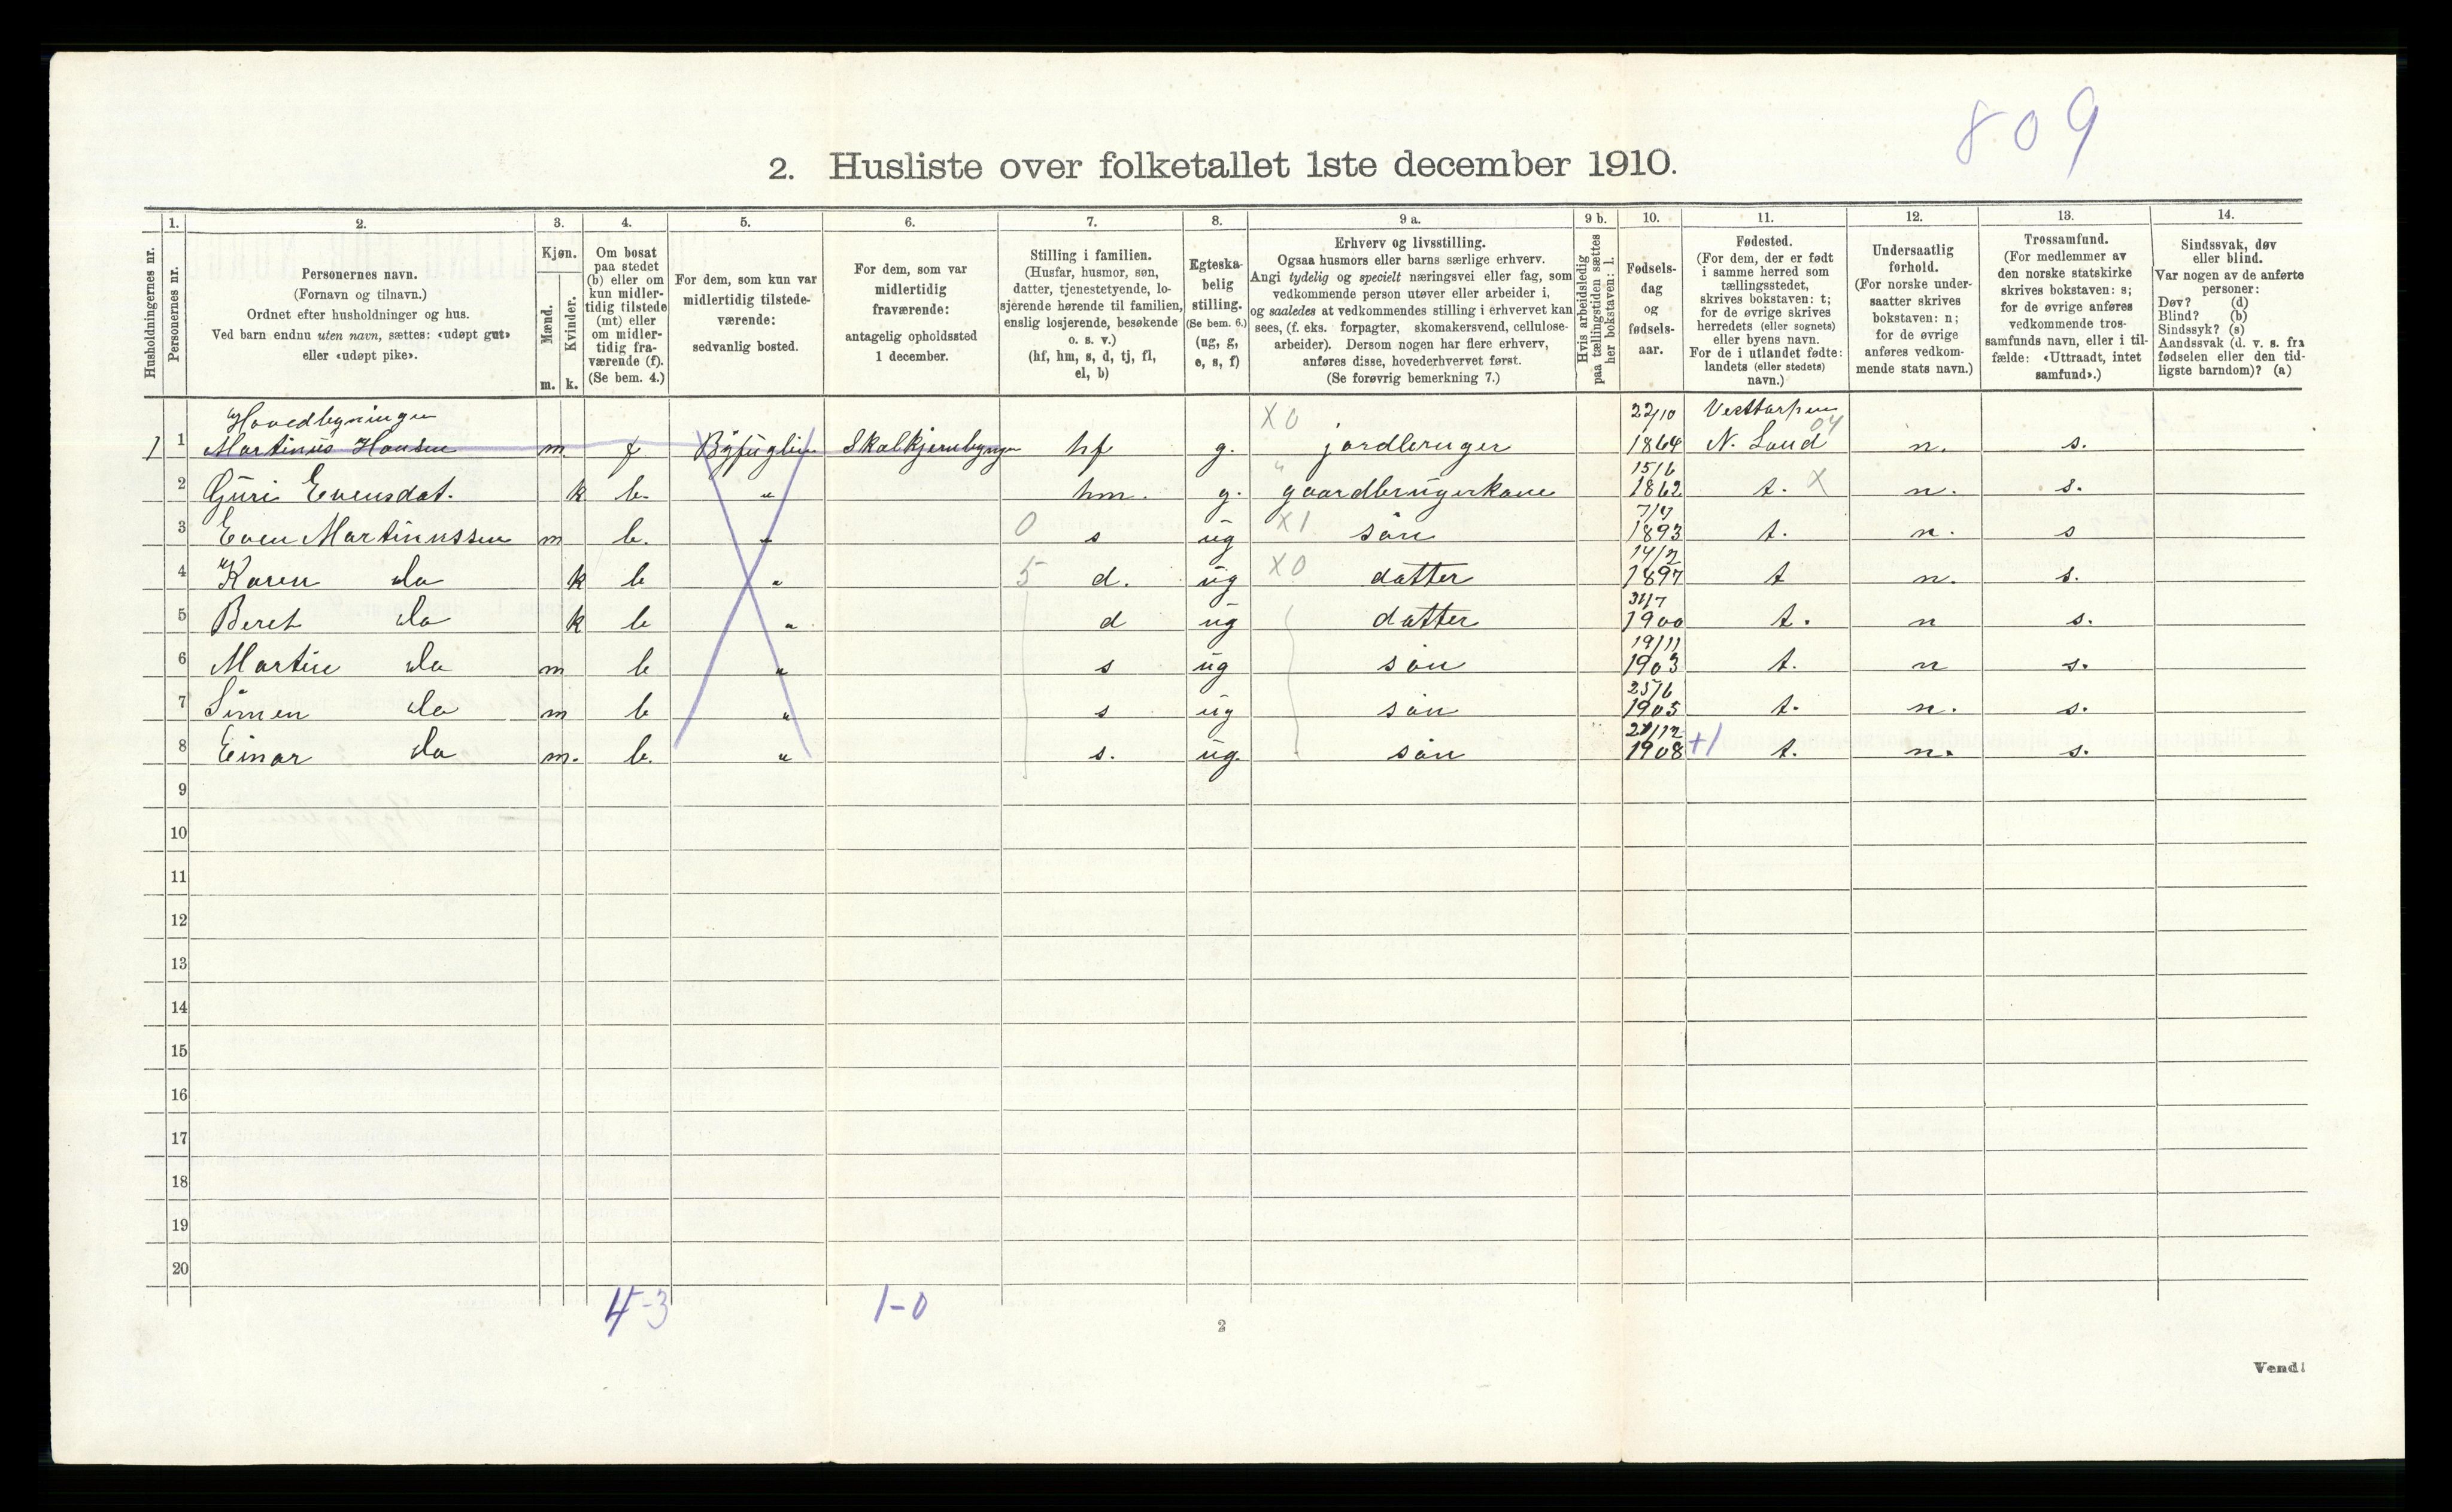 809
2. Husliste over folketallet 1ste december 1910.
Husholdningernes nr.
1.
Personernes nr.
2.
Personernes navn.
(Fornavn og tilnavn.)
Ordnet efter husholdninger og hus.
Ved barn endnu uten navn, sættes: «udøpt gut»
eller «udøpt pike».
3.
Kjøn.
Mænd.
Kvinder.
m. k.
4.
Om bosat
paa stedet
(b) eller om
kun midler-
tidig tilstede
(mt) eller
om midler-
tidig fra-
værende (f).
(Se bem. 4.)
5.
For dem, som kun var
midlertidig tilstede-
værende:
sedvanlig bosted.
6.
For dem, som var
midlertidig
fraværende:
antagelig opholdssted
1 december.
7.
Stilling i familien.
(Husfar, husmor, søn,
datter, tjenestetyende, lo-
sjerende hørende til familien,
enslig losjerende, besøkende
o. s. v.)
(hf, hm, s, d, tj, fl,
el, b)
8.
Egteska-
belig
stilling.
(Se bem. 6.)
(ug, g,
e, s, f)
9 a.
Erhverv og livsstilling.
Ogsaa husmors eller barns særlige erhverv.
Angi tydelig og specielt næringsvei eller fag, som
vedkommende person utøver eller arbeider i,
og saaledes at vedkommendes stilling i erhvervet kan
sees, (f. eks. forpagter, skomakersvend, cellulose-
arbeider). Dersom nogen har flere erhverv,
anføres disse, hovederhvervet først.
(Se forøvrig bemerkning 7.)
9 b.
Hvis arbeidsledig
paa tællingstiden sættes
her bokstaven: l.
10.
Fødsels-
dag
og
fødsels-
aar.
11.
Fødested.
(For dem, der er født
i samme herred som
tællingsstedet,
skrives bokstaven: t;
for de øvrige skrives
herredets (eller sognets)
eller byens navn.
For de i utlandet fødte:
landets (eller stedets)
navn.)
12.
Undersaatlig
forhold.
(For norske under-
saatter skrives
bokstaven: n;
for de øvrige
anføres vedkom-
mende stats navn.)
13.
Trossamfund.
(For medlemmer av
den norske statskirke
skrives bokstaven: s;
for de øvrige anføres
vedkommende tros-
samfunds navn, eller i til-
fælde: «Uttraadt, intet
samfund».)
14.
Sindssvak, døv
eller blind.
Var nogen av de anførte
personer:
Døv? (d)
Blind? (b)
Sindssyk? (s)
Aandssvak (d. v. s. fra
fødselen eller den tid-
ligste barndom)? (a)
Hovedbygningen X0 22/10 04
1 1 Martinus Hansen m f Bøfuglin hf g. jordbruger 1864 N. Land n. s.
2 Guri Evensdat. k b. " hm. g. " gaardbrugerkone 15/6 1862 t. X n. s.
3 Even Martinussen m b. " 0 s ug X1 sön 1893 t. n. s
4 Karen do k b " 5 d. ug X0 datter 14/2 1897 t n. s.
5 Beret do k b " d ug datter 31/7 1900 t. n s.
6 Martin do m b " s ug sön 19/11 1903 t. n s.
7 Simen do m b " s ug sön 25/6 1905 t. n. s.
8 Einar do m. b. " s. ug. sön 1908 +1 t. n. s.
9
10
11
12
13
14
15
16
17
18
19
20
4-3 1-0
2
Vend!